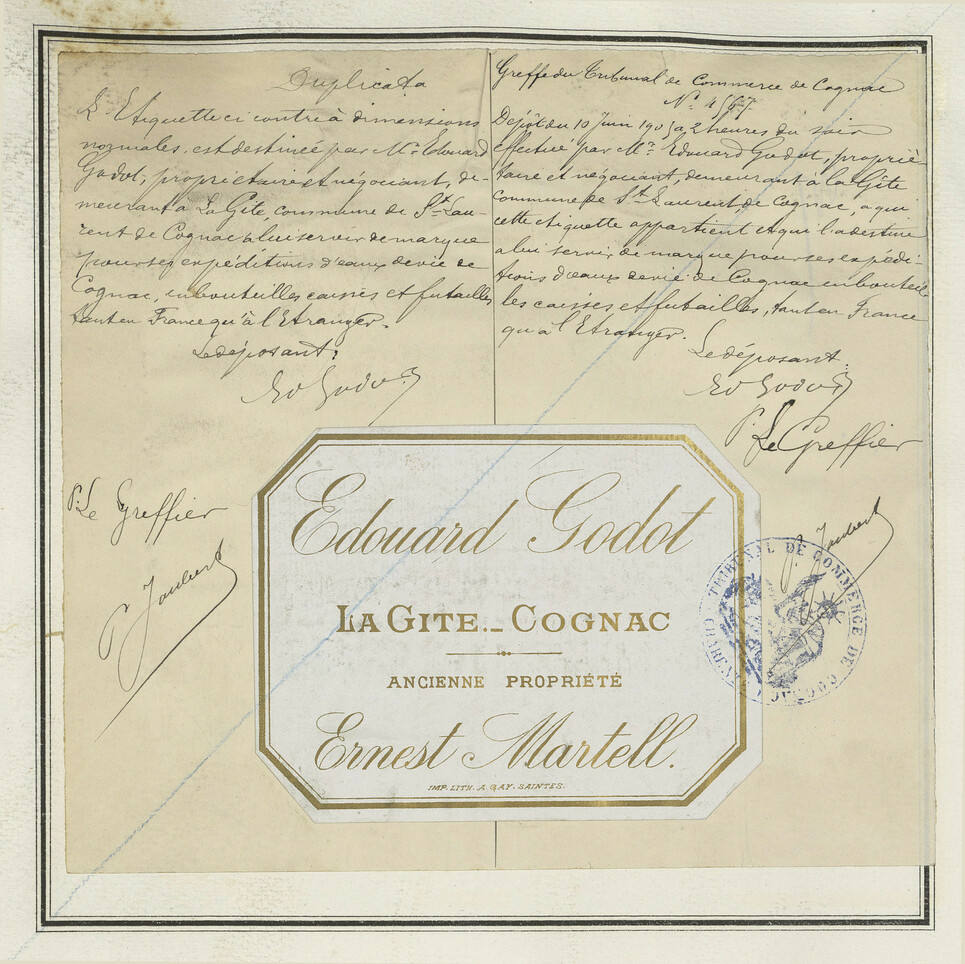 Duplicata
L'Etiquette ci contre à dimensions
normales, est destinée par Mr. Edouard
Godot, propriétaire et négociant, de-
meurant à La Gîte, commune de St. Lau-
rent de Cognac à lui servir de marque
pour ses expéditions d'eaux de vie de
Cognac, en bouteilles caisses et futailles
tant en France qu'à l'Etranger.
Le déposant:
Ed Godot
P. Le Greffier
P Joubert
Greffe du Tribunal de Commerce de Cognac
No. 4567
Dépôt du 10 Juin 1905 à 2 heures du soir
effectué par Mr. Edouard Godot, proprié-
taire et négociant, demeurant à la Gîte
commune de St. Laurent de Cognac, a qui
cette etiquette appartient et qui l'a destine
a lui servir de marque pour ses expédi-
tions d'eaux de vie de Cognac en bouteil-
les caisses et futailles, tant en France
qu'à l'Etranger.
Le déposant.
Ed Godot
P. Le Greffier
P. Joubert
Edouard Godot
LA GITE._COGNAC
ANCIENNE PROPRIÉTÉ
Ernest Martell.
IMP. LITH. A. GAY. SAINTES.
TRIBUNAL DE COMMERCE DE COGNAC